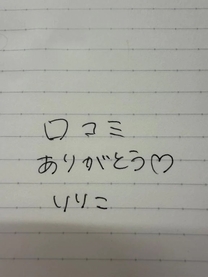 口コミ
ありがとう♡
りりこ